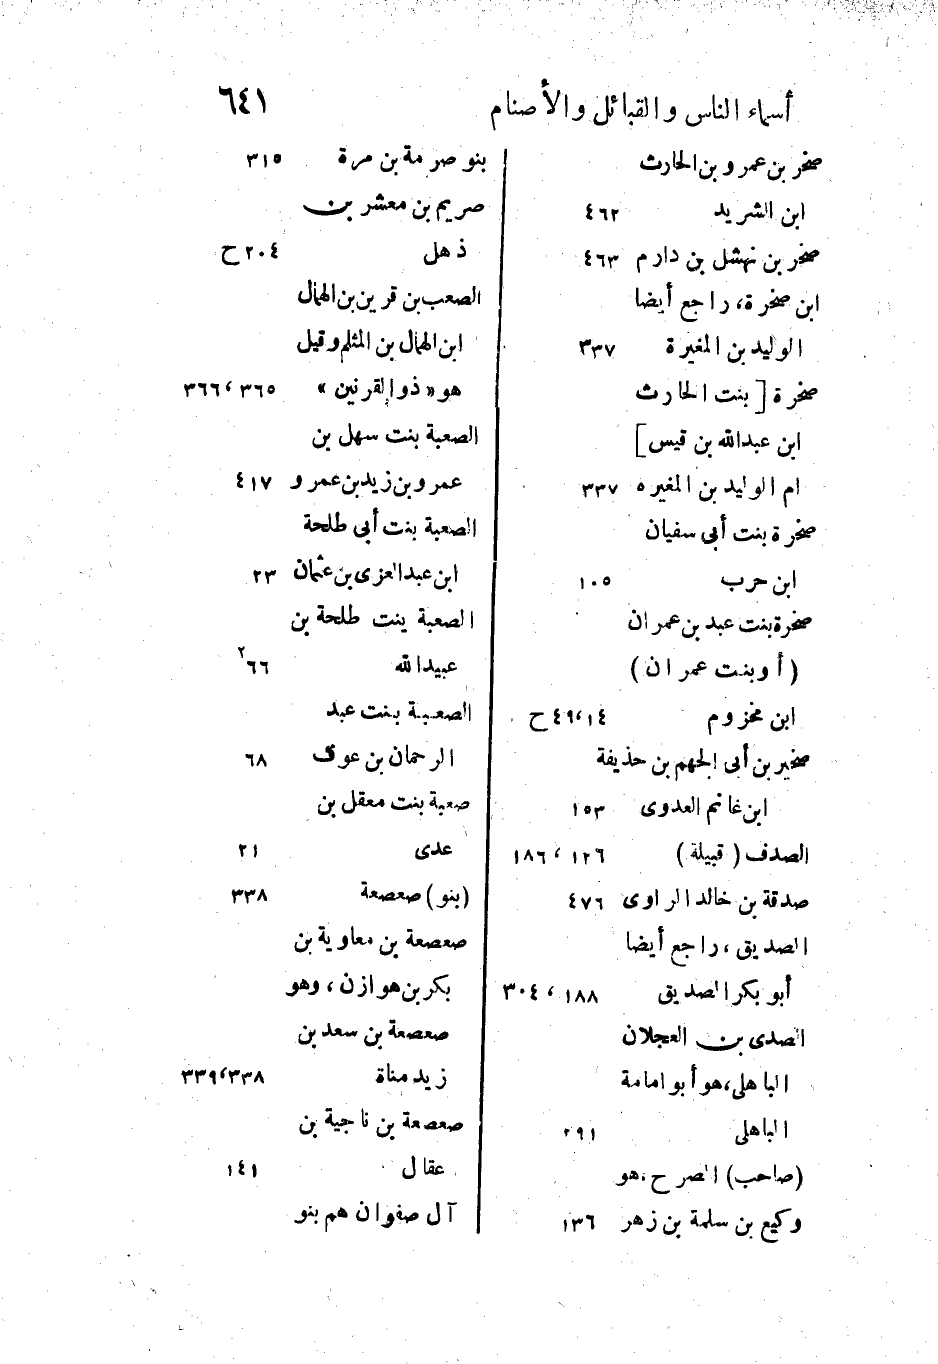 أسماء الناس والقبائل والأصنام ٦٤١
صخر بن عمرو بن الحارث
ابن الشريد ٤٦٢
صخر بن نهشل بن دارم ٤٦٣
ابن صخرة، راجع أيضا
الوليد بن المغيرة ٣٣٧
صخرة [بنت الحارث
ابن عبدالله بن قيس]
ام الوليد بن المغيره ٣٣٧
صخرة بنت أبى سفيان
ابن حرب ١٠٥
صخرة بنت عبد بن عمران
(أو بنت عمران)
ابن مخزوم ١٤، ٤٩ح
صخير بن أبى الجهم بن حذيفة
ابن غانم العدوى ١٥٣
الصدف (قبيلة) ١٢٦، ١٨٦
صدقة بن خالد الراوى ٤٧٦
الصديق، راجع أيضا
أبو بكر الصديق ١٨٨، ٣٠٤
الصدى بن العجلان
الباهلى، هو أبو امامة
الباهلى ٢٩١
(صاحب) الصرح، هو
وكيع بن سلمة بن زهر ١٣٦
بنو صرمة بن مرة ٣١٥
صريم بن معشر بن
ذهل ٢٠٤ح
الصعب بن قرين بن الهمال
ابن الهمال بن المثلم وقيل
هو «ذو القرنين» ٣٦٥، ٣٦٦
الصعبة بنت سهل بن
عمرو بن زيد بن عمرو ٤١٧
الصعبة بنت أبى طلحة
ابن عبدالعزى بن عثمان ٢٣
الصعبة ينت طلحة بن
عبيدالله ٦٦٢
الصعبة بنت عبد
الرحمان بن عوف ٦٨
صعبة بنت معقل بن
عدى ٢١
(بنو) صعصعة ٣٣٨
صعصعة بن معاوية بن
بكر بن هوازن، وهو
صعصعة بن سعد بن
زيد مناة ٣٣٨، ٣٣٩
صعصعة بن ناجية بن
عقال ١٤١
آل صفوان هم بنو